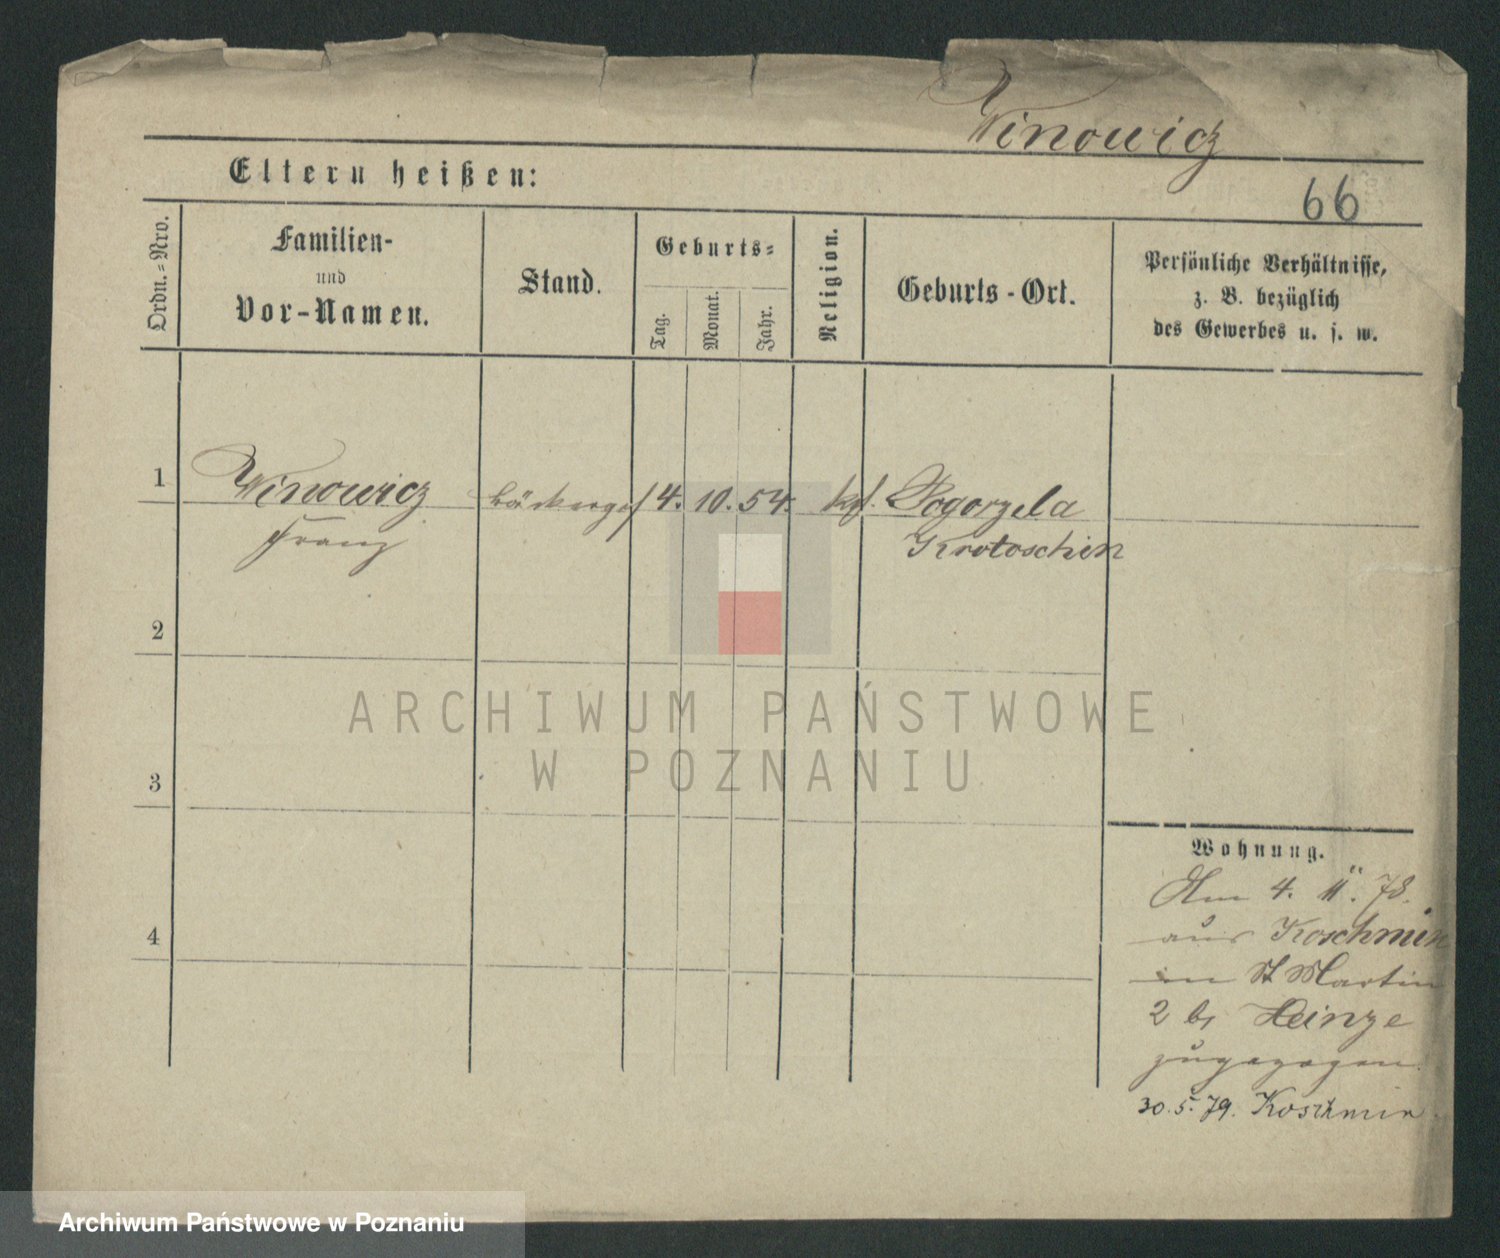 Winowicz
Eltern heißen:
66
Ordn.=Nro.
Familien-
und
Vor-Namen.
Stand.
Geburts=
Tag.
Monat.
Jahr.
Religion.
Geburts-Ort.
Persönliche Verhältnisse,
z. B. bezüglich
des Gewerbes u. s. w.
1
Winowicz Bäckerges 4. 10. 54. kф. Pogorzela
Franz Krotoschin
2
3
4
ARCHIWUM PAŃSTWOWE
W POZNANIU
Wohnung.
Am 4. 11. 78.
aus Koschmin
in St Martin
2 bei Heinze
zugezogen.
30.5.79. Koschmin
Archiwum Państwowe w Poznaniu